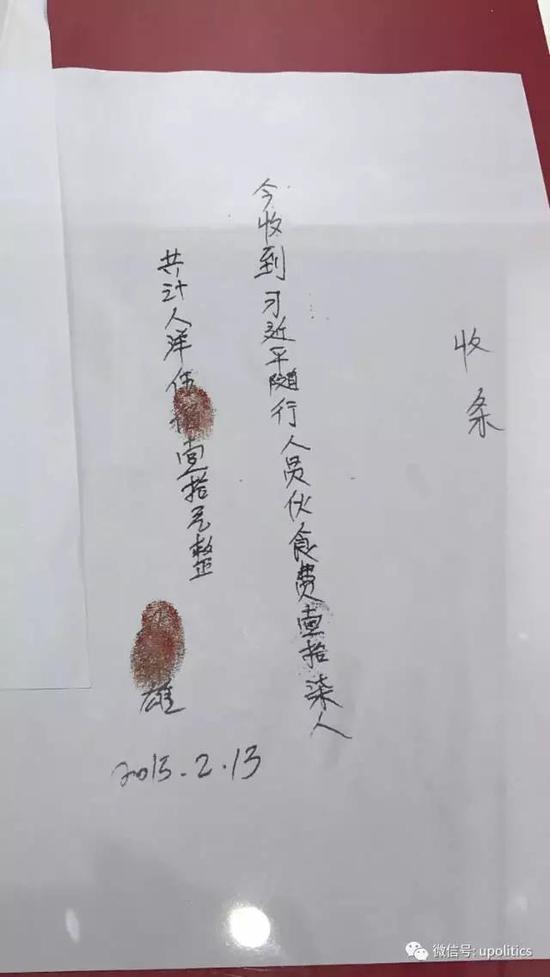 收条
今收到习近平随行人员伙食费壹拾柒人
共计人洋伍 壹拾元整
雄
2015.2.13
微信号: upolitics